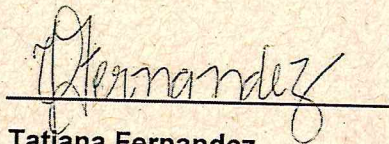 TFernandez
Tatiana Fernandez